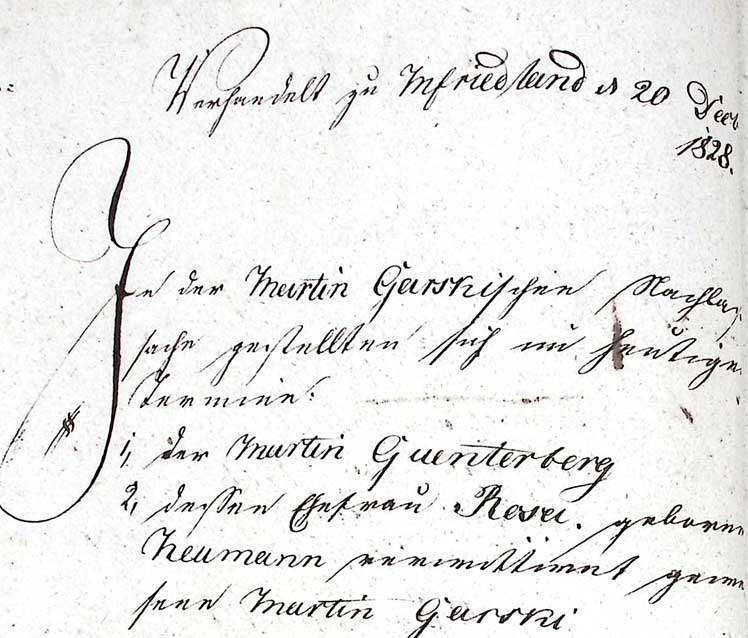 Verhandelt zu Mfriedland d 20 Decb
1828.
In der Martin Garskischen Nachlaß
sache gestellten sich im heutige
Termine:
1, der Martin Guenterberg
2, dessen Ehefrau Rosa. geborne
Neumann verwittwet gewe
sene Martin Garski